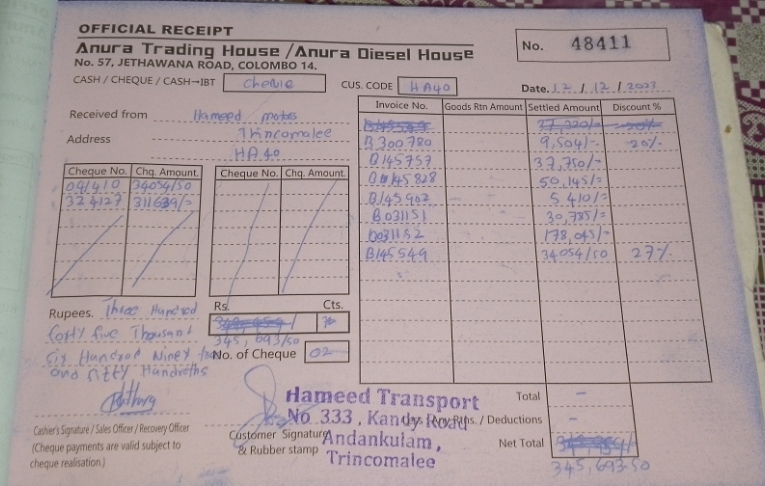 OFFICIAL RECEIPT
Anura Trading House / Anura Diesel House
No. 57, JETHAWANA ROAD, COLOMBO 14.
No. 48411
CASH / CHEQUE / CASH→IBT Cheque
CUS. CODE HA40
Date. 12 / 12 / 2023
Received from Hameed motors
Address Trincomalee
HA40
Cheque No. Chq. Amount.
091410 34054/50
324127 311639/=
Cheque No. Chq. Amount.
Invoice No. Goods Rtn Amount Settled Amount Discount %
B300780 9,504/- 20%
B145757 37,750/-
50,145/=
B145902 5410/=
B031151 30,785/=
B031152 178,045/=
B145549 34054/50 27%
Rupees. Three Hundred
forty five Thousand
Six Hundred Ninety
and fifty Hundreths
Rs. Cts.
345,693/50
No. of Cheque 02
Total -
/ Deductions -
Net Total
345,693.50
Cashier's Signature / Sales Officer / Recovery Officer
(Cheque payments are valid subject to
cheque realisation.)
Customer Signature
& Rubber stamp
Hameed Transport
No 333, Kandy Road
Andankulam,
Trincomalee